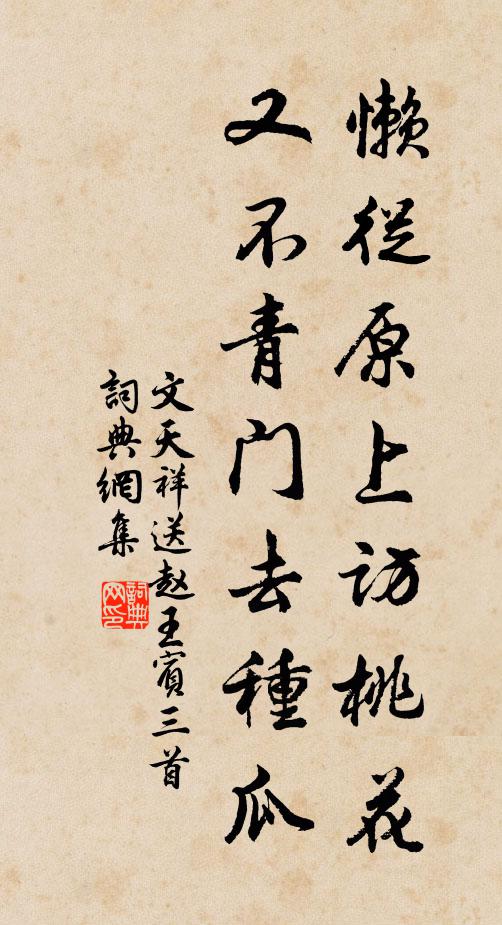 懒從原上访桃花
又不青门去種瓜
文天祥送赵王賓三首
詞典網集
詞典网印